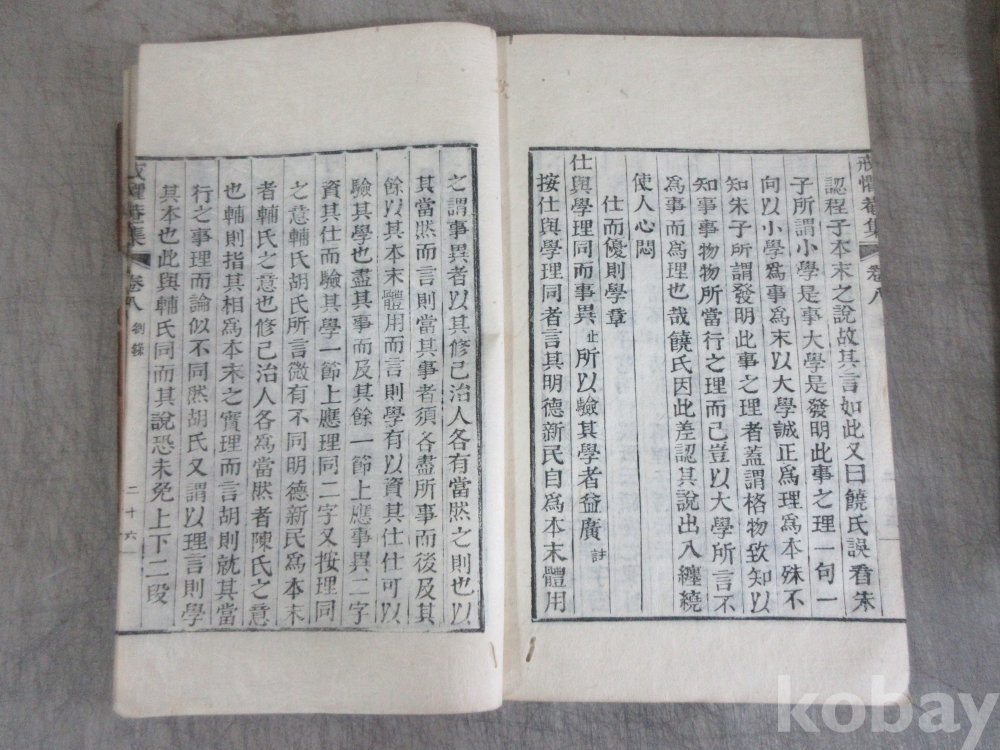 戒懼菴集 卷八
認程子本末之說故其言如此又曰饒氏誤看朱
子所謂小學是事大學是發明此事之理一句一
向以小學爲事爲末以大學誠正爲理爲本殊不
知朱子所謂發明此事之理者蓋謂格物致知以
知事事物物所當行之理而已豈以大學所言不
爲事而爲理也哉饒氏因此差認其說出入纏繞
使人心悶
仕而優則學章
仕與學理同而事異止所以驗其學者益廣註
按仕與學理同者言其明德新民自爲本末體用
之謂事異者以其修己治人各有當然之則也以
其當然而言則當其事者須各盡所事而後及其
餘以其本末體用而言則學有以資其仕仕可以
驗其學也盡其事而及其餘一節上應事異二字
資其仕而驗其學一節上應理同二字又按理同
之意輔氏胡氏所言微有不同明德新民爲本末
者輔氏之意也修己治人各爲當然者陳氏之意
也輔則指其相爲本末之實理而言胡則就其當
行之事理而論似不同然胡氏又謂以理言則學
其本也此與輔氏同而其說恐未免上下二段
戒懼菴集 卷八 劄錄 二十六
kobay